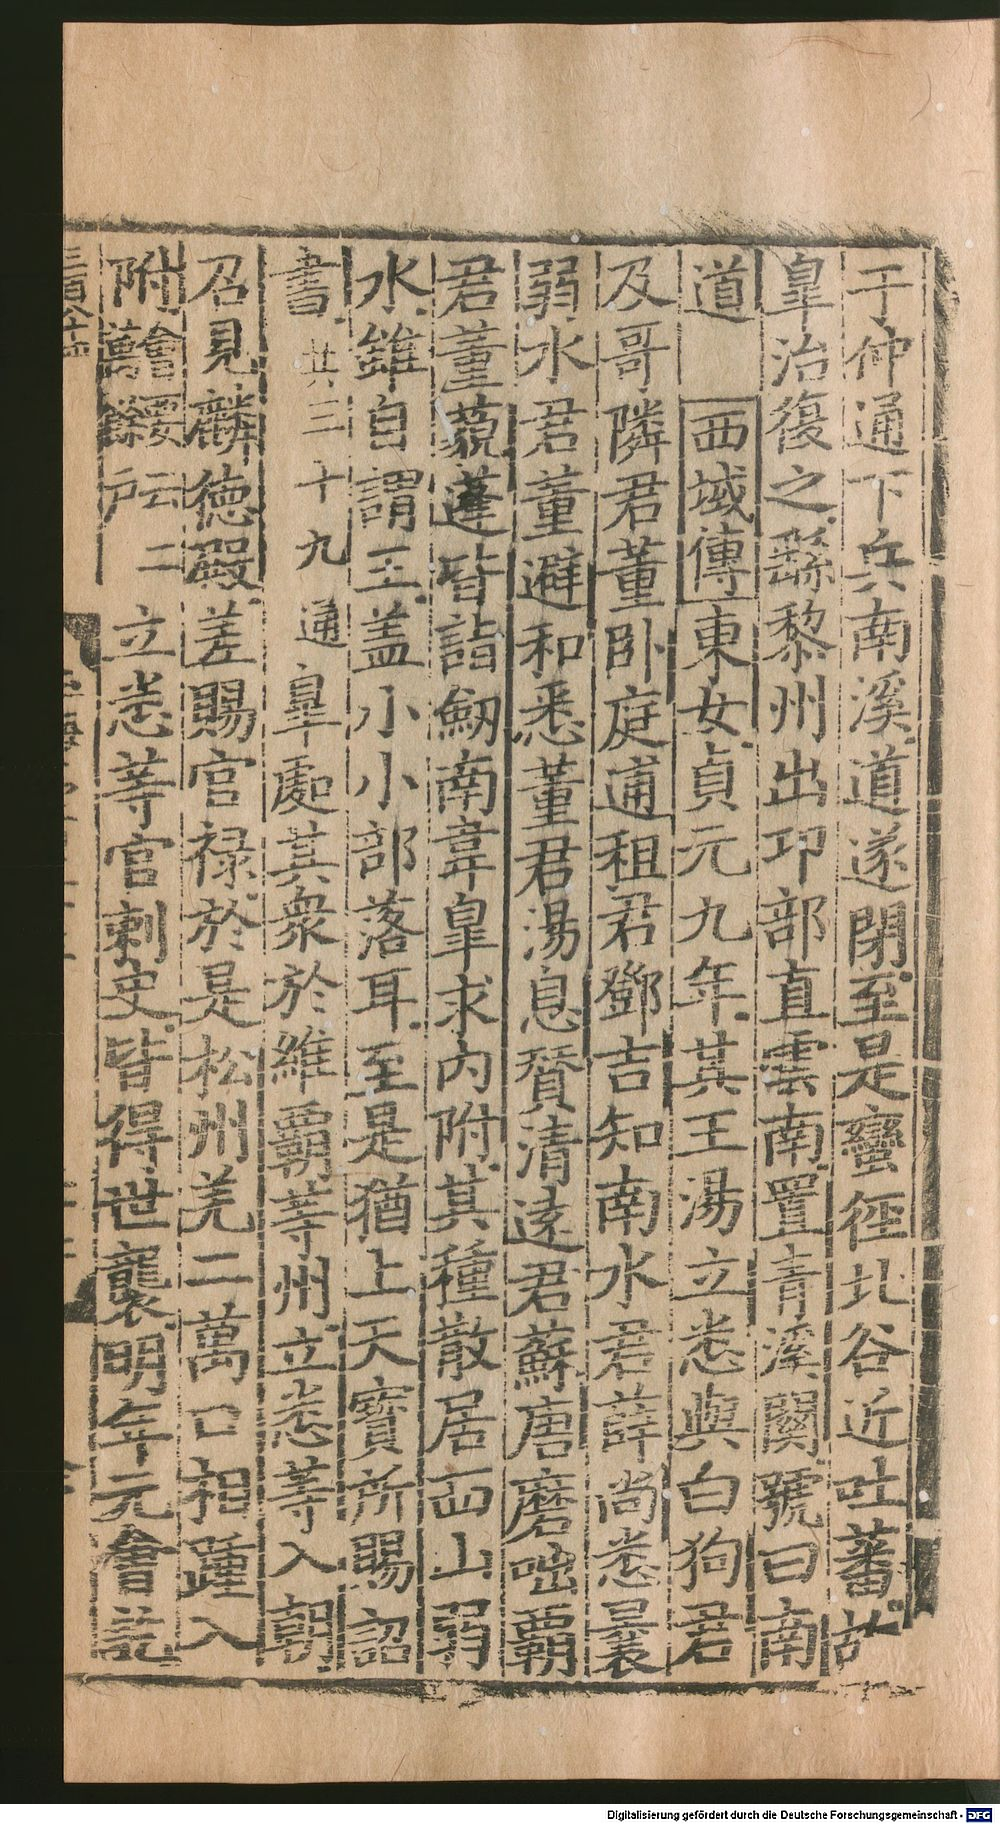 于仲通下兵南溪道遂閉至是蠻徑北谷近吐蕃故
臯治復之繇黎州出邛部直雲南置青溪關號曰南
道 西域傳東女貞元九年其王湯立悉與白狗君
及哥隣君董卧庭逋租君鄧吉知南水君薛尚悉曩
弱水君董避和悉董君湯息贊清遠君蘇唐磨咄霸
君董藐蓬皆詣劔南韋臯求内附其種散居西山弱
水雖自謂王盖小小部落耳至是猶上天寶所賜詔
書共三十九通臯處其衆於維霸等州立悉等入朝
召見麟德殿差賜官禄於是松州羌二萬口相踵入
附鷠鏺云二立悉等官刺史皆得世襲明年元會詑
Digitalisierung gefördert durch die Deutsche Forschungsgemeinschaft - DFG